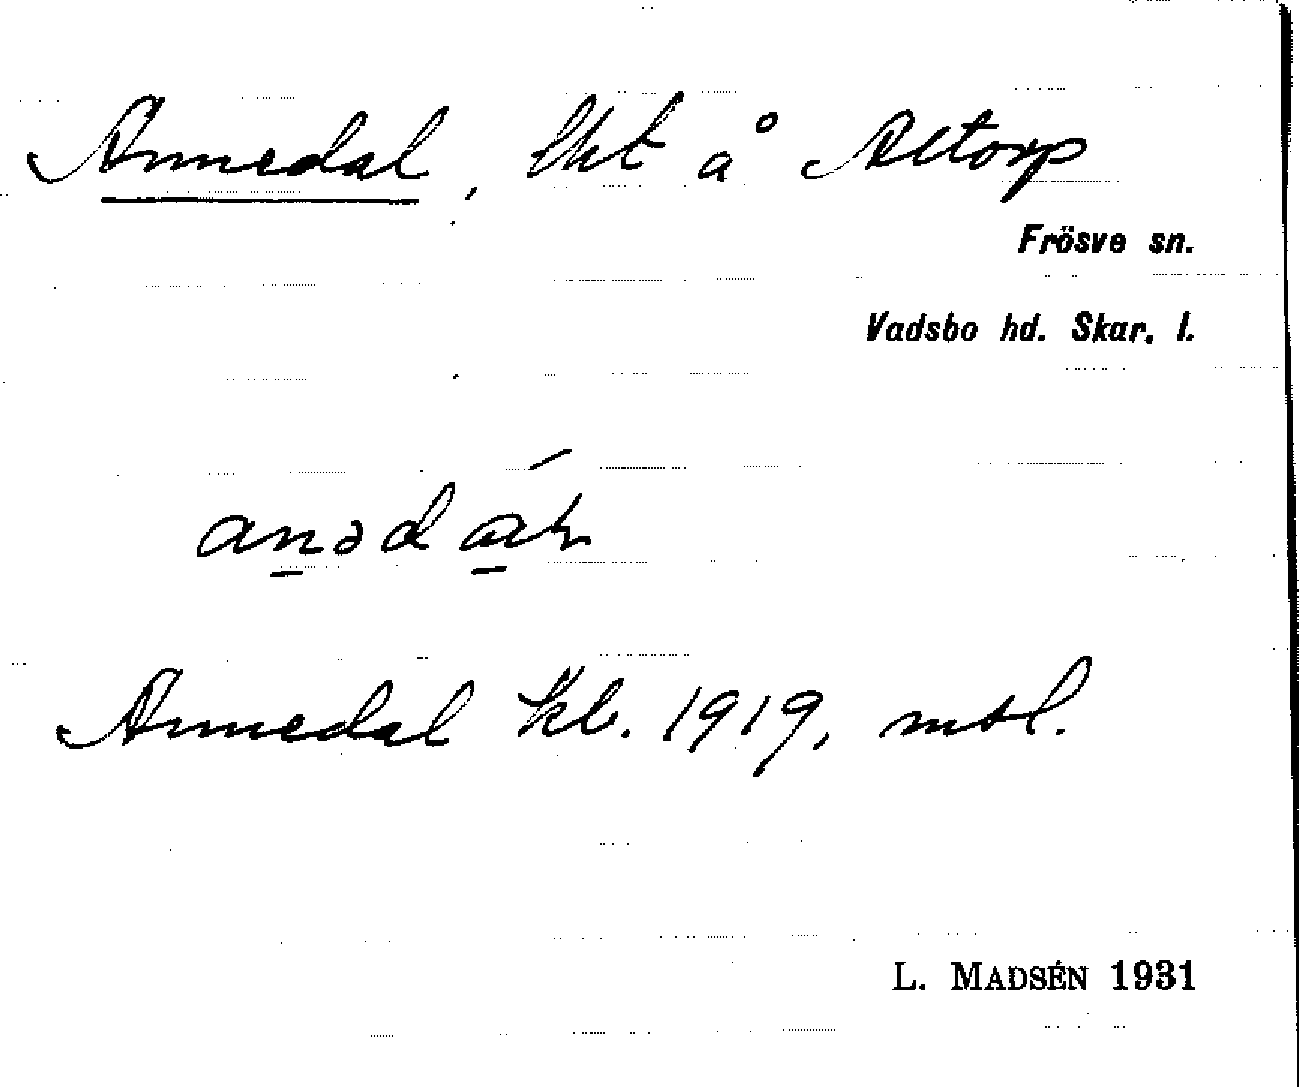 Annedal, lht å Altorp
Frösve sn.
Vadsbo hd. Skar. l.
Annedal kl. 1919, mtl.
L. MADSÉN 1931